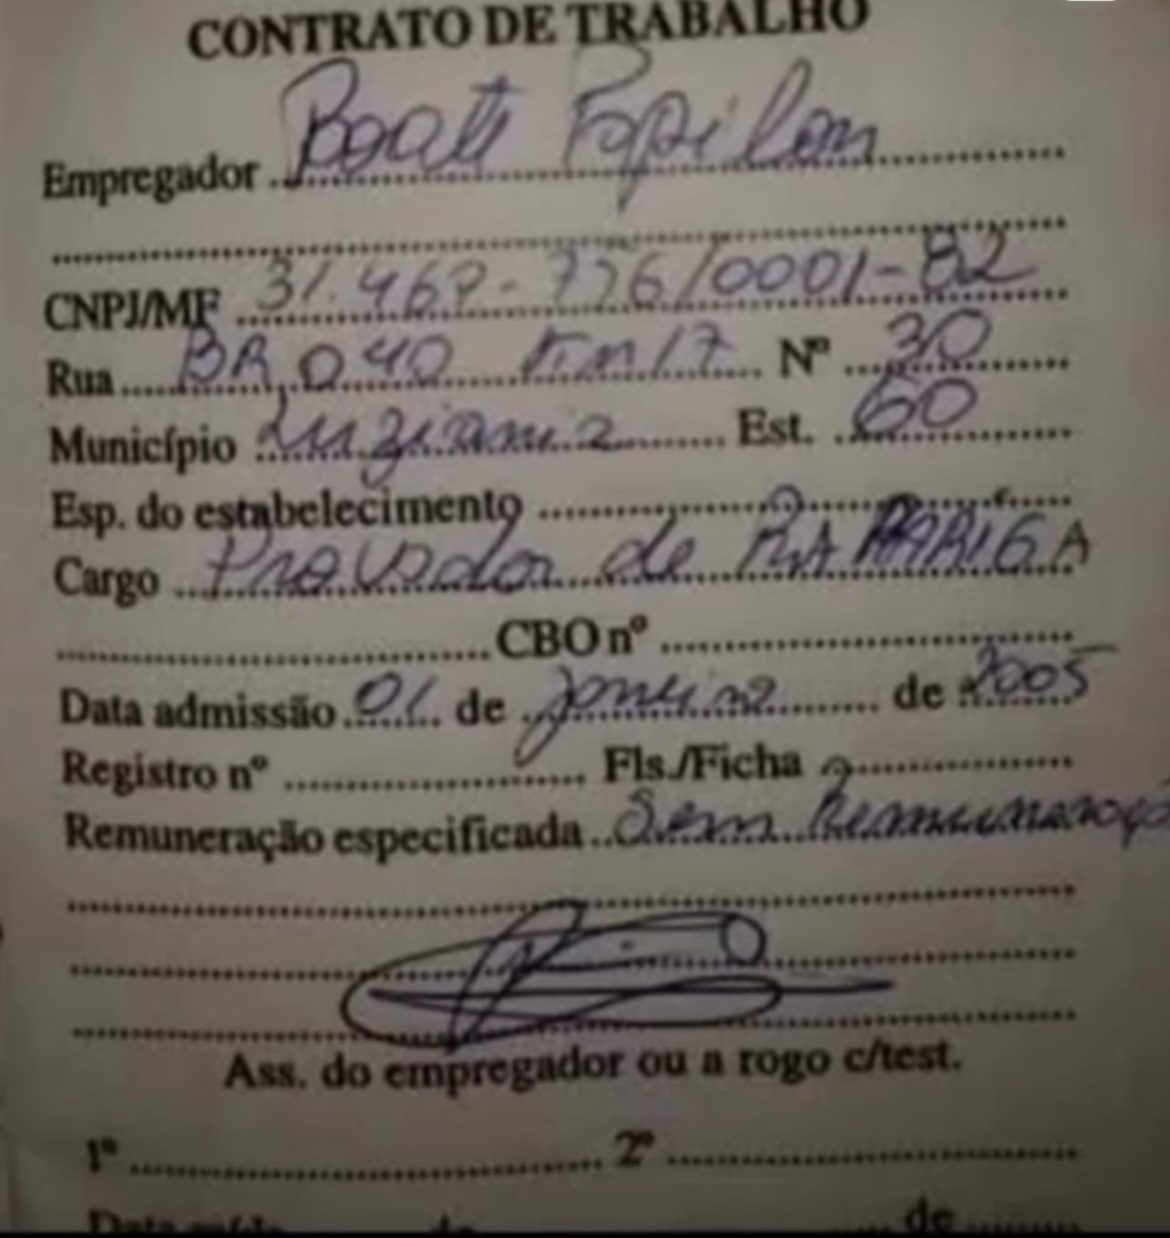 CONTRATO DE TRABALHO
Empregador Boate Papilon
CNPJ/MF 31.469-756/0001-82
Rua BR 040 Km 17 Nº 30
Município Luziania Est. GO
Esp. do estabelecimento
Cargo Provador de RAPARIGA
CBO nº
Data admissão 01 de Janeiro de 2005
Registro nº Fls./Ficha
Remuneração especificada Sem Remuneração
Ass. do empregador ou a rogo c/test.
1º 2º
Data saída de de